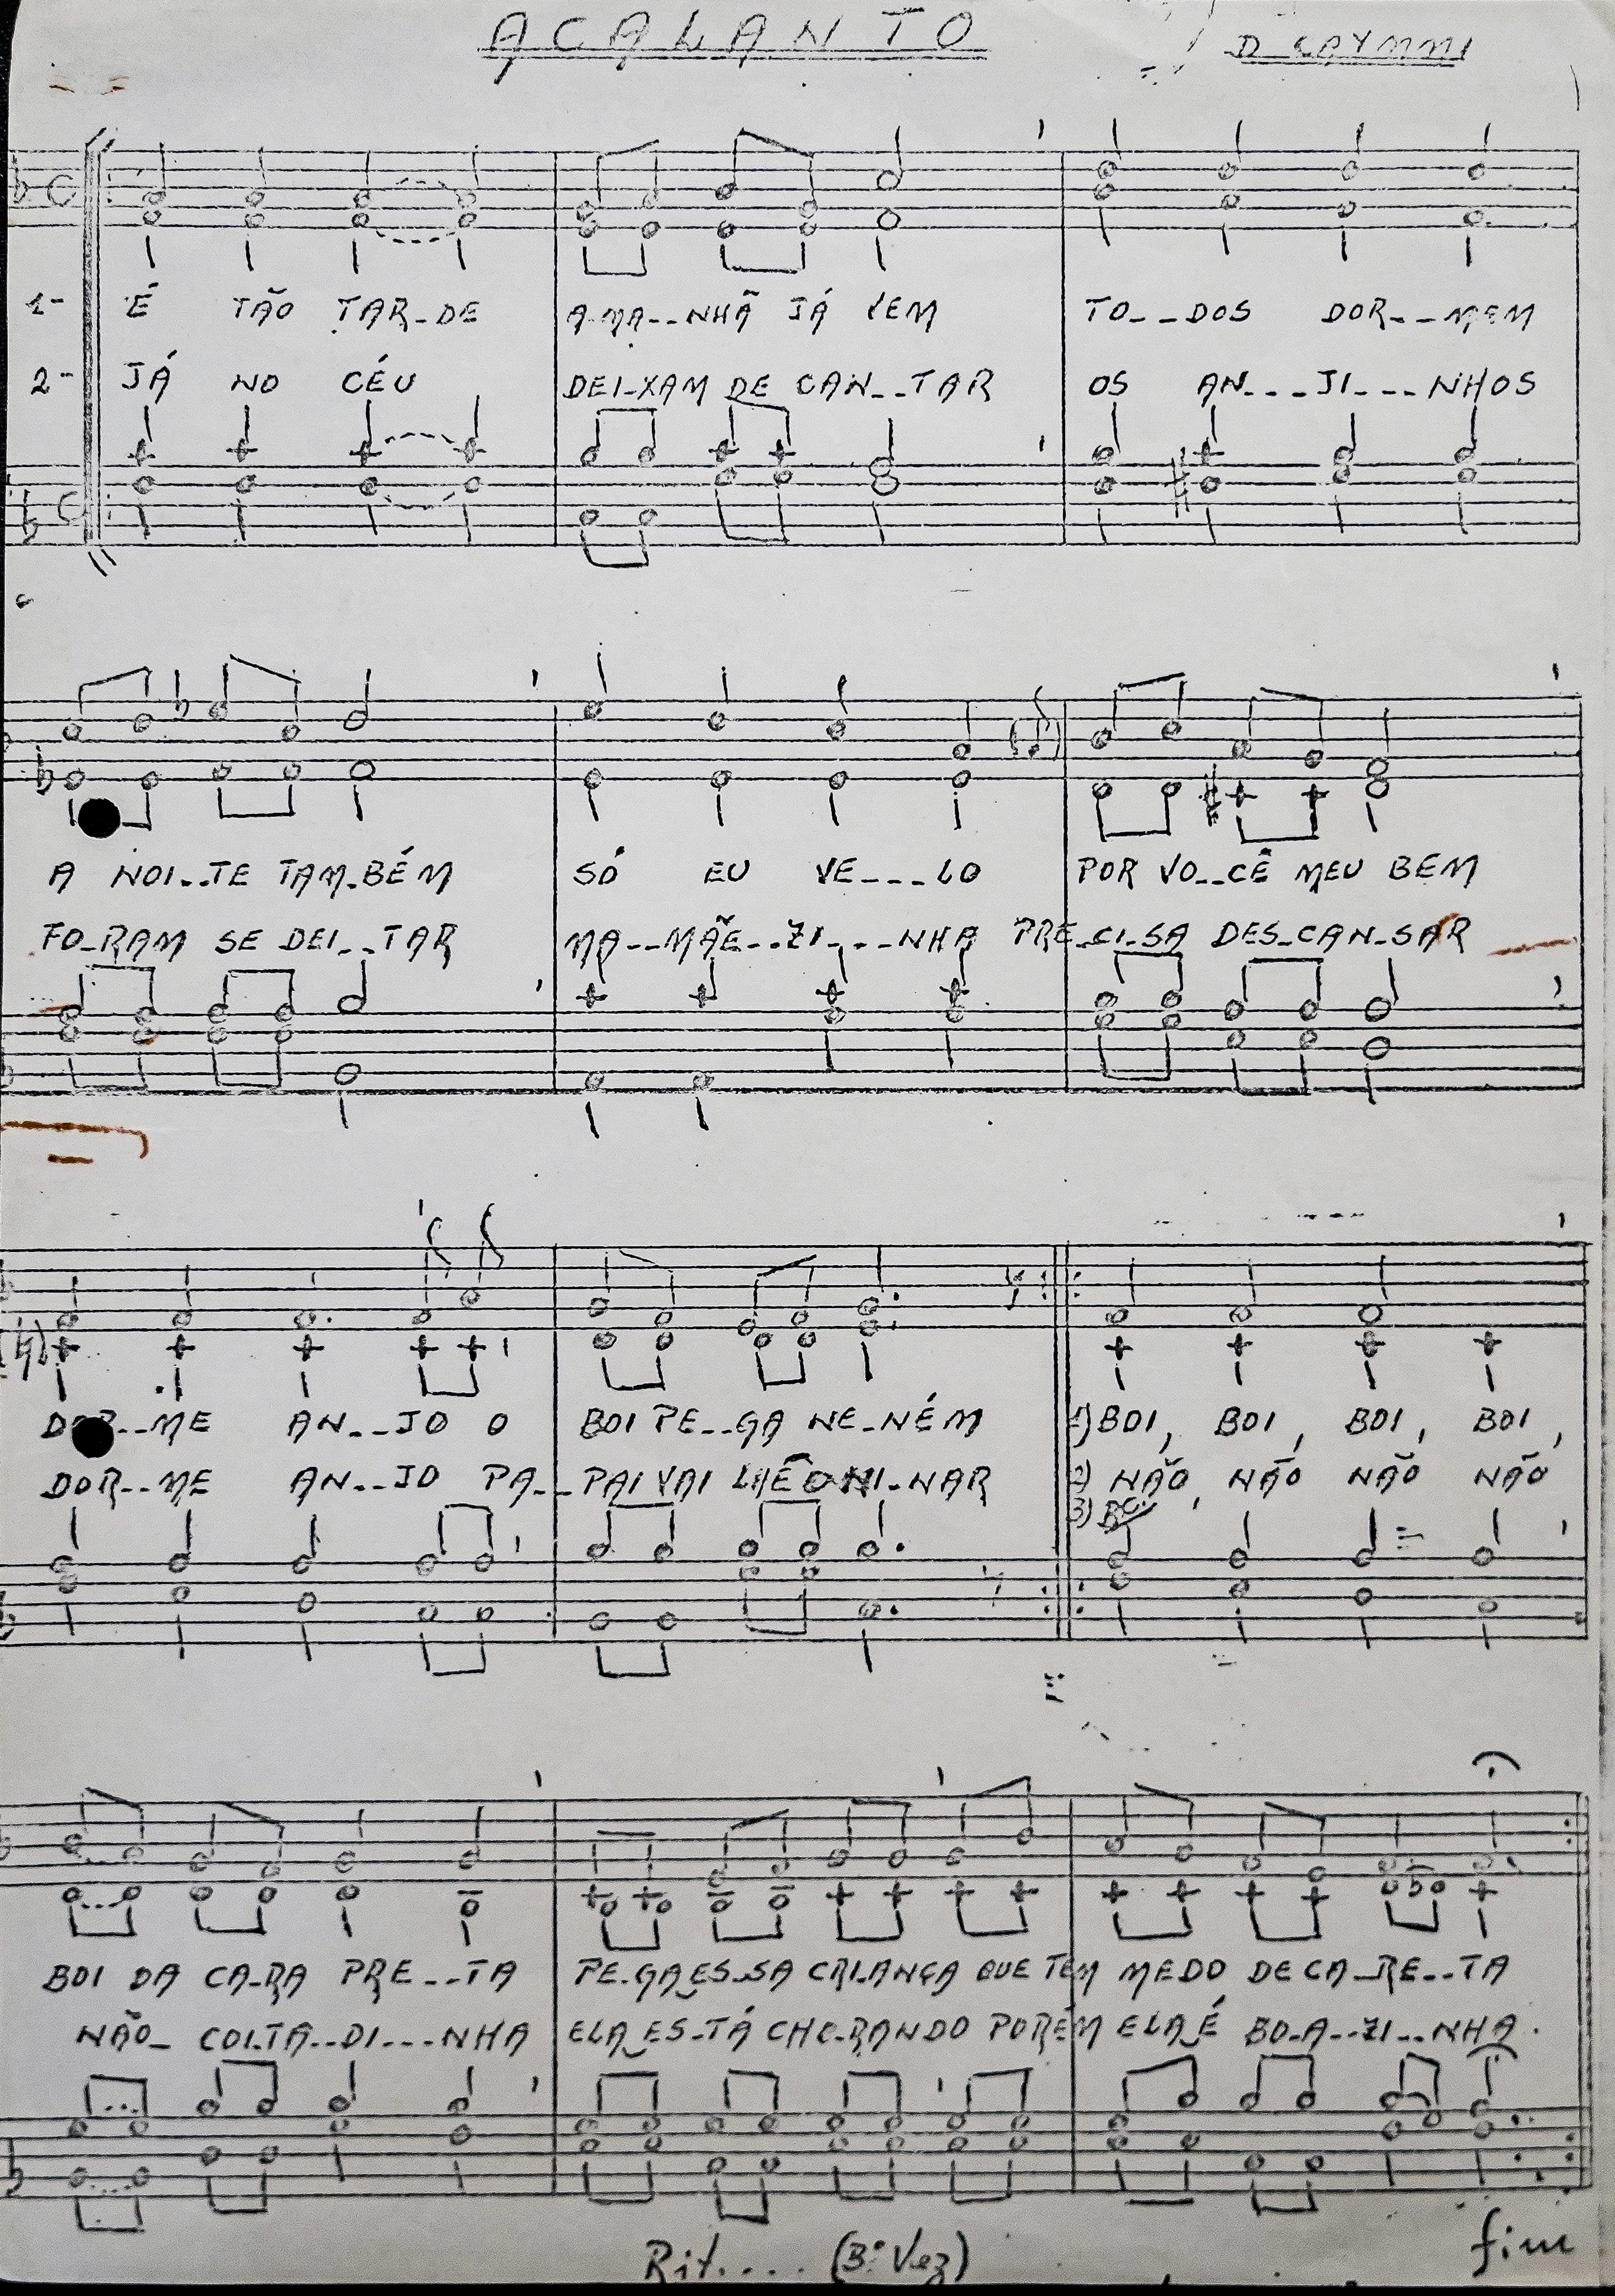 ACALANTO
D CAYMMI
1- É TÃO TAR-DE A-MA--NHÃ JÁ VEM TO--DOS DOR--MEM
2- JÁ NO CÉU DEI-XAM DE CAN--TAR OS AN---JI---NHOS
A NOI--TE TAM-BÉM SÓ EU VE---LO POR VO--CÊ MEU BEM
FO-RAM SE DEI--TAR MA--MÃE--ZI---NHA PRE-CI-SA DES-CAN-SAR
DOR--ME AN--JO O BOI PE--GA NE-NÉM 1) BOI, BOI, BOI, BOI,
DOR--ME AN--JO PA--PAI VAI LHE NI-NAR 2) NÃO, NÃO NÃO NÃO
3)
BOI DA CA-RA PRE--TA PE-GA ES-SA CRI-ANÇA QUE TEM MEDO DE CA-RE--TA
NÃO- COI-TA--DI---NHA ELA ES-TÁ CHO-RANDO PORÉM ELA É BO-A--ZI--NHA.
Rit.... (3ª Vez)
fim